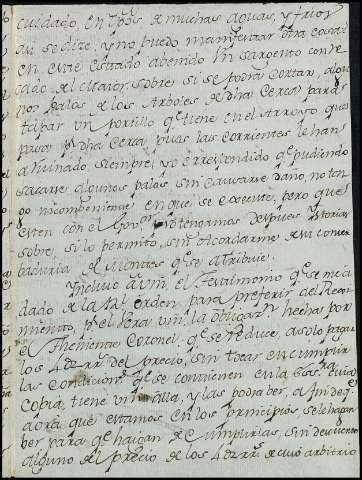 cuidado, en pos de muchas aguas, y frios
asi se dize; y no puedo manifestar otra cosa
en este estado abiendo un sargento con re
cado del citador, sobre si se podra cortar, algu
nos palos de los Arboles de dha Cerca para
tapar un portillo qe tiene en el Arroyo que
pasa pr dha Cerca, pues las corrientes le han
arruinado siempre, yo e respondido qe pudiendo
sacarse algunos palos, sin causarse daño, no ten
go incombeniente en que se execute, pero que
esten con el Govor no tengamos despues istorias
sobre, si lo permito, sin acordarme de
de qe se atribuie.
Yncluio a vm. el Testimonio qe se me a
dado de la Rl orden para preferir del Recu
dimiento, y pr el vera vm. la obligazn hecha por
el Theniente Coronel, qe se reduce, a solo pagar
los 42 rrs del precio, sin tocar en cumplir
las condiciones qe se contienen en la cuia
copia, tiene vm. alla, y las podra ver, a fin de qe
aora que estamos en los principios se le hagan
ber para qe haigan de cumplirlas, sin descuento
alguno del precio de los 42 rrs de cuio arbitrio